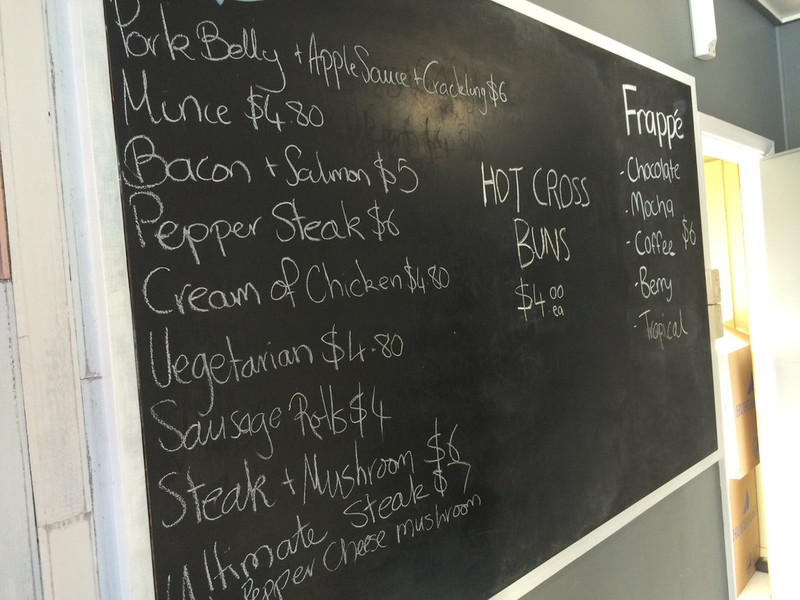 Pork Belly + Apple Sauce + Crackling $6
Mince $4.80
Bacon + Salmon $5
Pepper Steak $6
Cream of Chicken $4.80
Vegetarian $4.80
Sausage Rolls $4
Steak + Mushroom $6
Ultimate Steak $7
Pepper Cheese mushroom
HOT CROSS
BUNS
$4.00 ea
Frappé
- Chocolate
- Mocha
- Coffee $6
- Berry
- Tropical